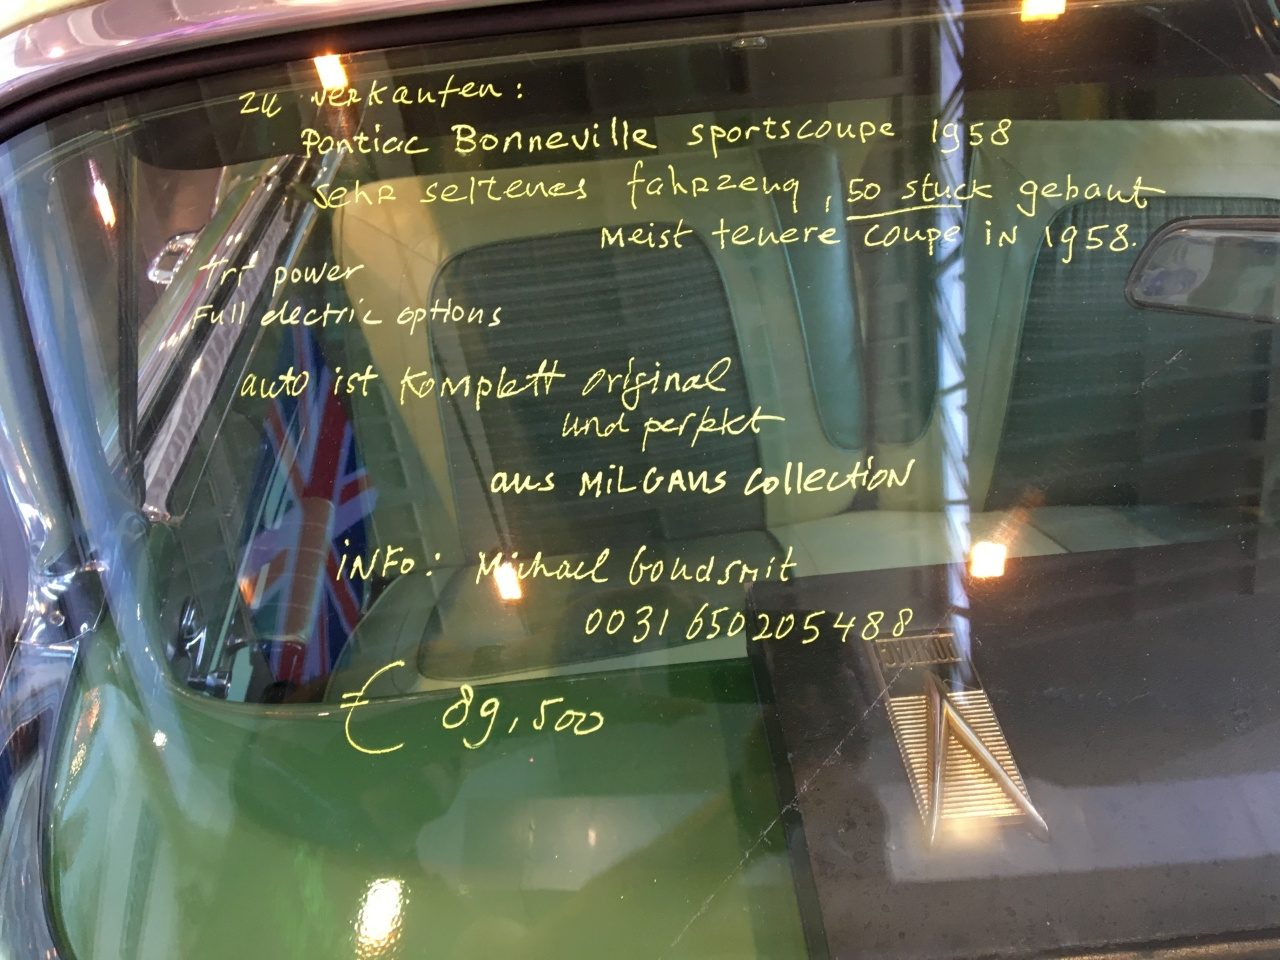 zu verkaufen:
Pontiac Bonneville sportscoupe 1958
sehr seltenes fahrzeug, 50 stuck gebaut
Meist teuere coupe in 1958.
Tri power
Full electric options
auto ist komplett original
und perfekt
aus MILGAUS Collection
info: Michael Goudsmit
0031 650205488
€ 89,500